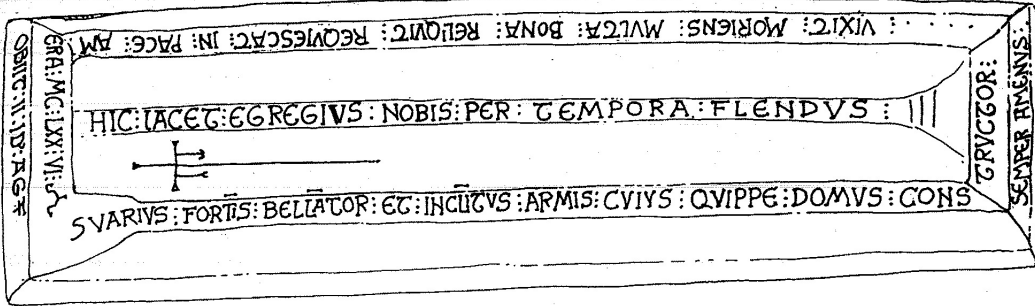 HIC:IACET:EGREGIVS:NOBIS:PER:TEMPORA:FLENDVS:
SVARIVS:FORTIS:BELLATOR:ET:INCLITVS:ARMIS:CVIVS:QVIPPE:DOMVS:CONS
TRVCTOR:
SEMPER AMENVS:
VIXIT: MORIENS: MVLTA: BONA: RELIQVIT: REQVIESCAT: IN: PACE: AM
ERA:MC:LXX:VI:
OBIIT:II:ID':AG